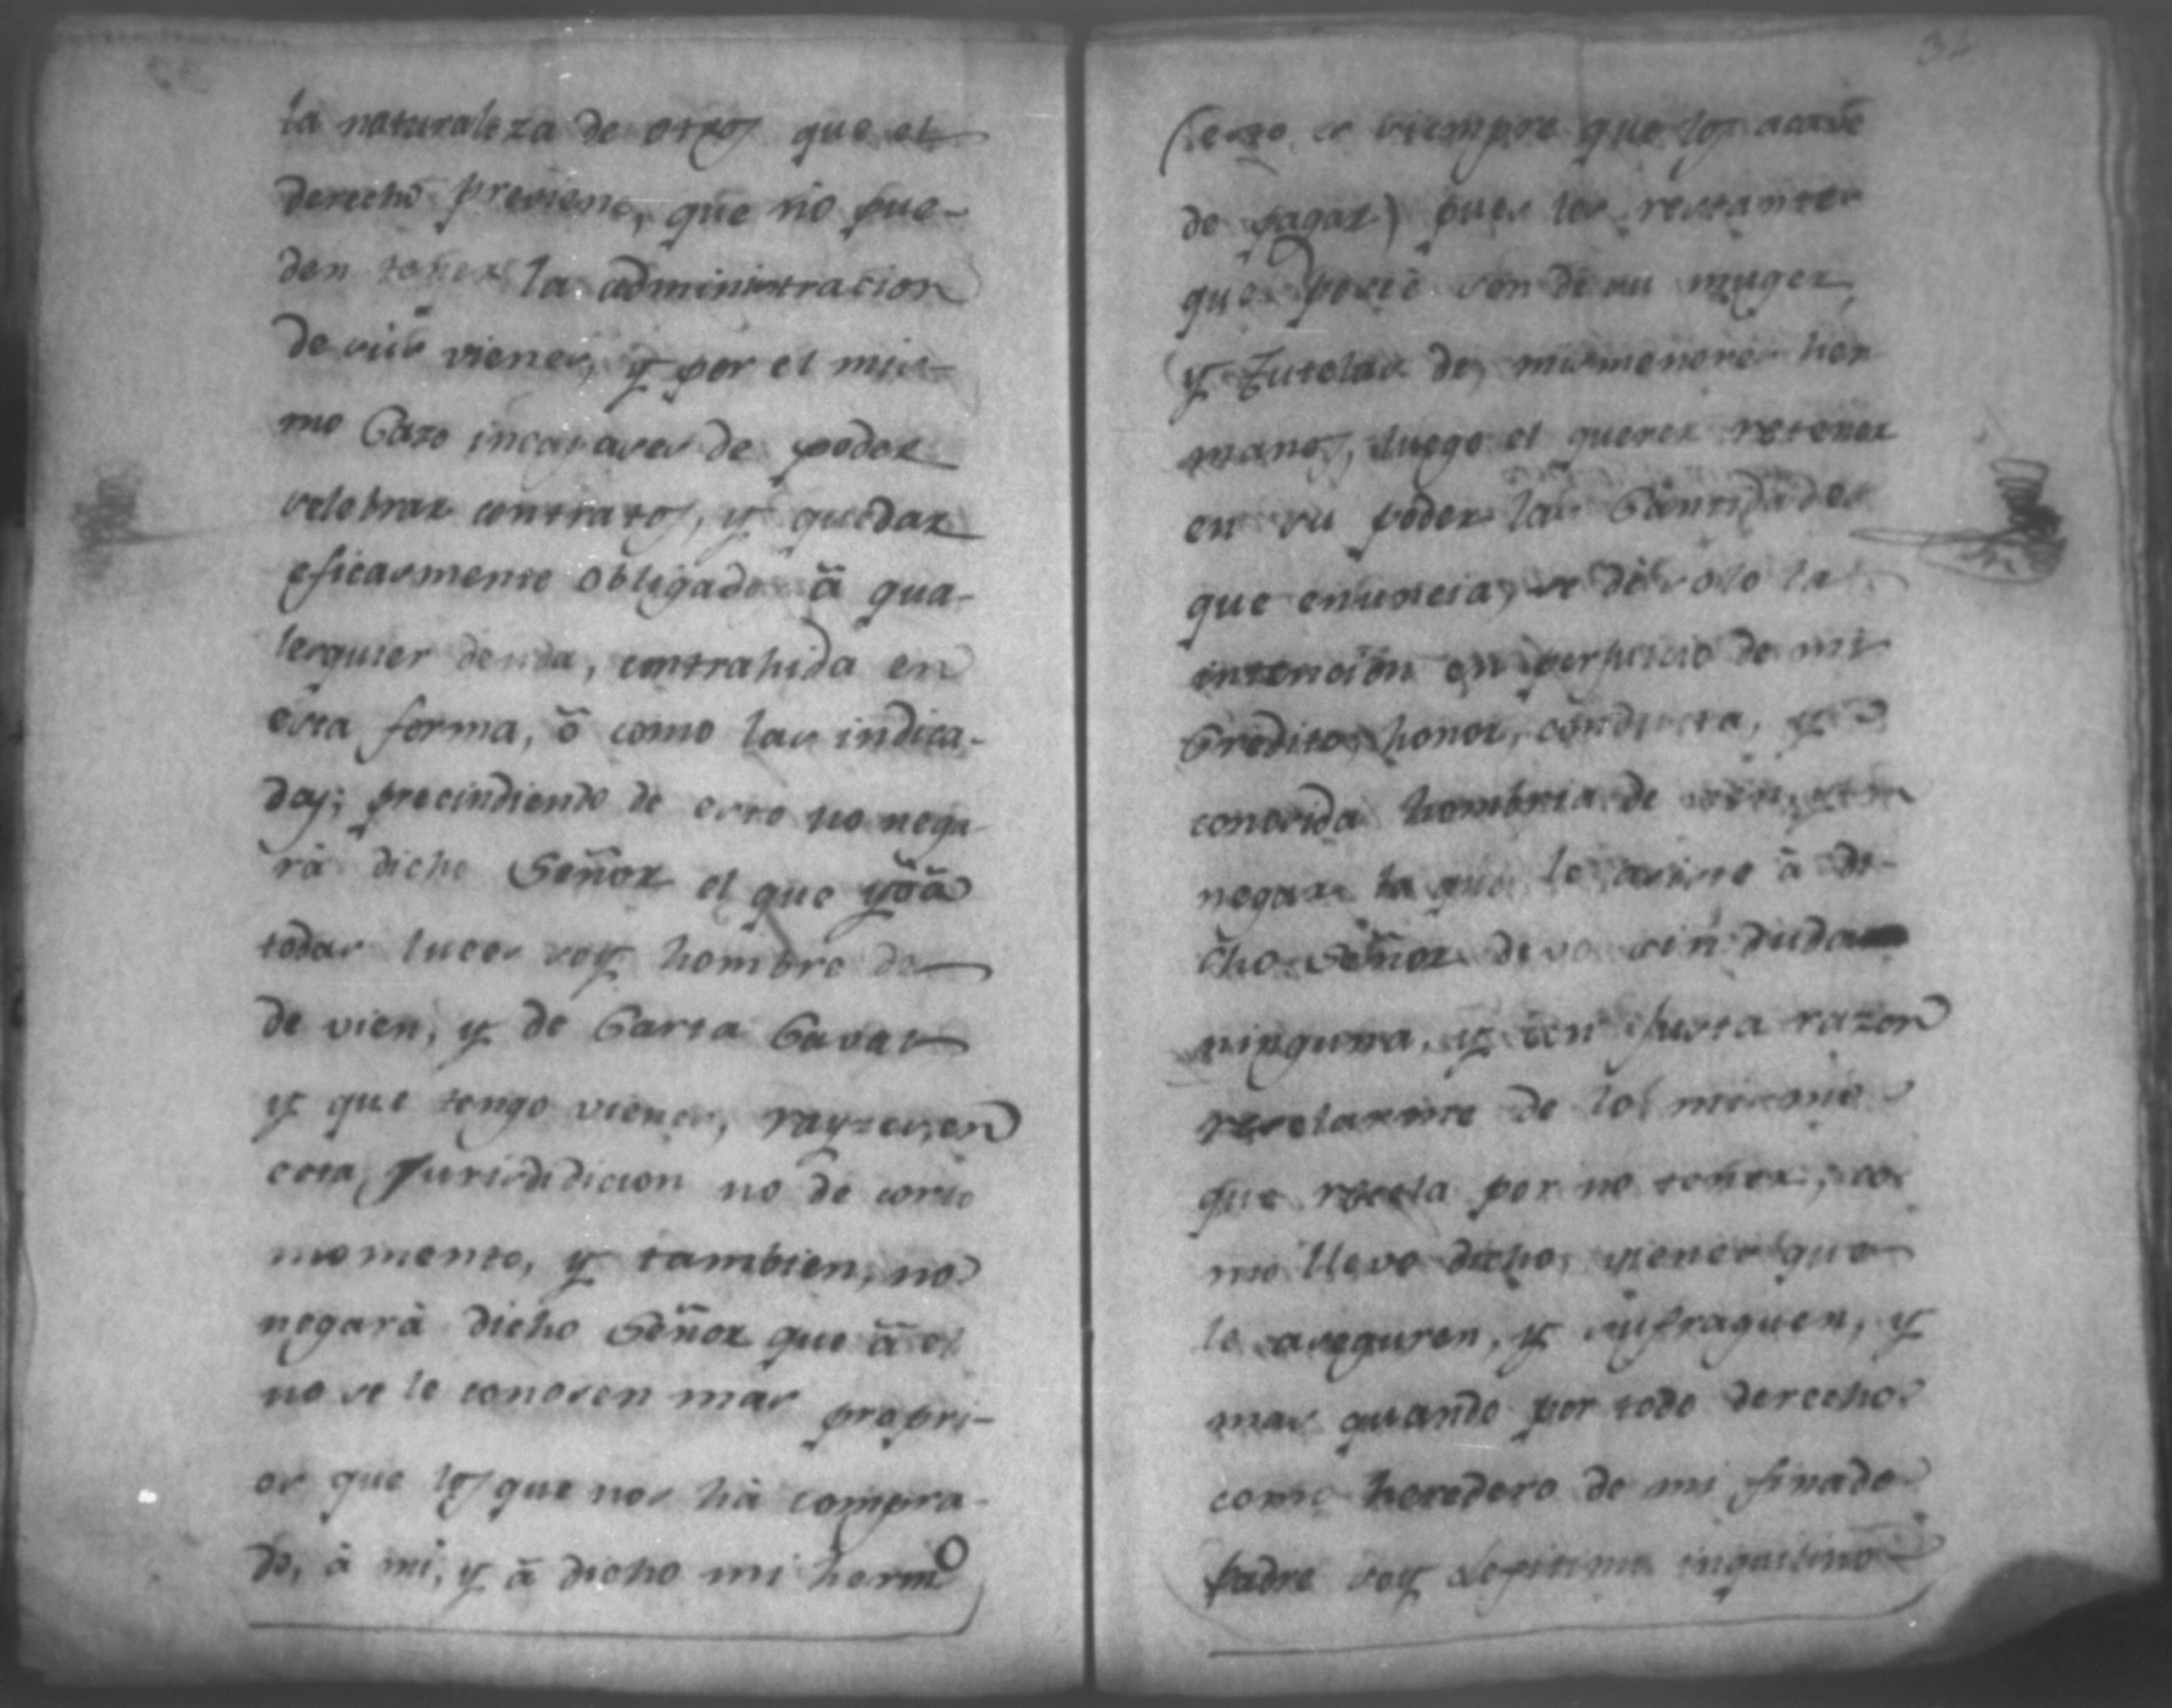 la naturaleza de otros que el
derecho previene, que no pue-
den tener la administracion
de sus vienes, y por el mis-
mo Cazo incapases de poder
selebrar contratos, y quedar
eficasmente obligados ã qua-
lesquier deuda, contrahida en
esta forma, õ como las indica-
das; precindiendo de esto no nega
rà dicho Señor el que yo ã
todas luces soy hombre de
de vien, y de Carta Caval
y que tengo vienes, rayzes, en
esta Jurisdidicion no de corto
momento, y tambien, no
negarà dicho Señor que ã el
no se le conosen mas propri-
os que los que nos hà compra-
do, à mi, y ã dicho mi hermo
32
(esto es siempre que los acave
de pagar) pues los restantes
que poseè son de su muger,
y Tutelas de mis menores her
manos, luego el querer retener
en su poder las Cantidades
que enuncia, se de solo la
intencion en perjuicio de mi
Credito, honor, conducta, y
conosida hombria de vien,
negar la que le asiste à di-
cho Señor devo sin duda
ninguna, y con justa razon
reselarme de lo mismo
que resela por no tener, co-
mo llevo dicho, vienes que
le aseguren, y sufraguen, y
mas quando por todo derecho
como heredero de mi finado
Padre soy Lexitimo inquilino